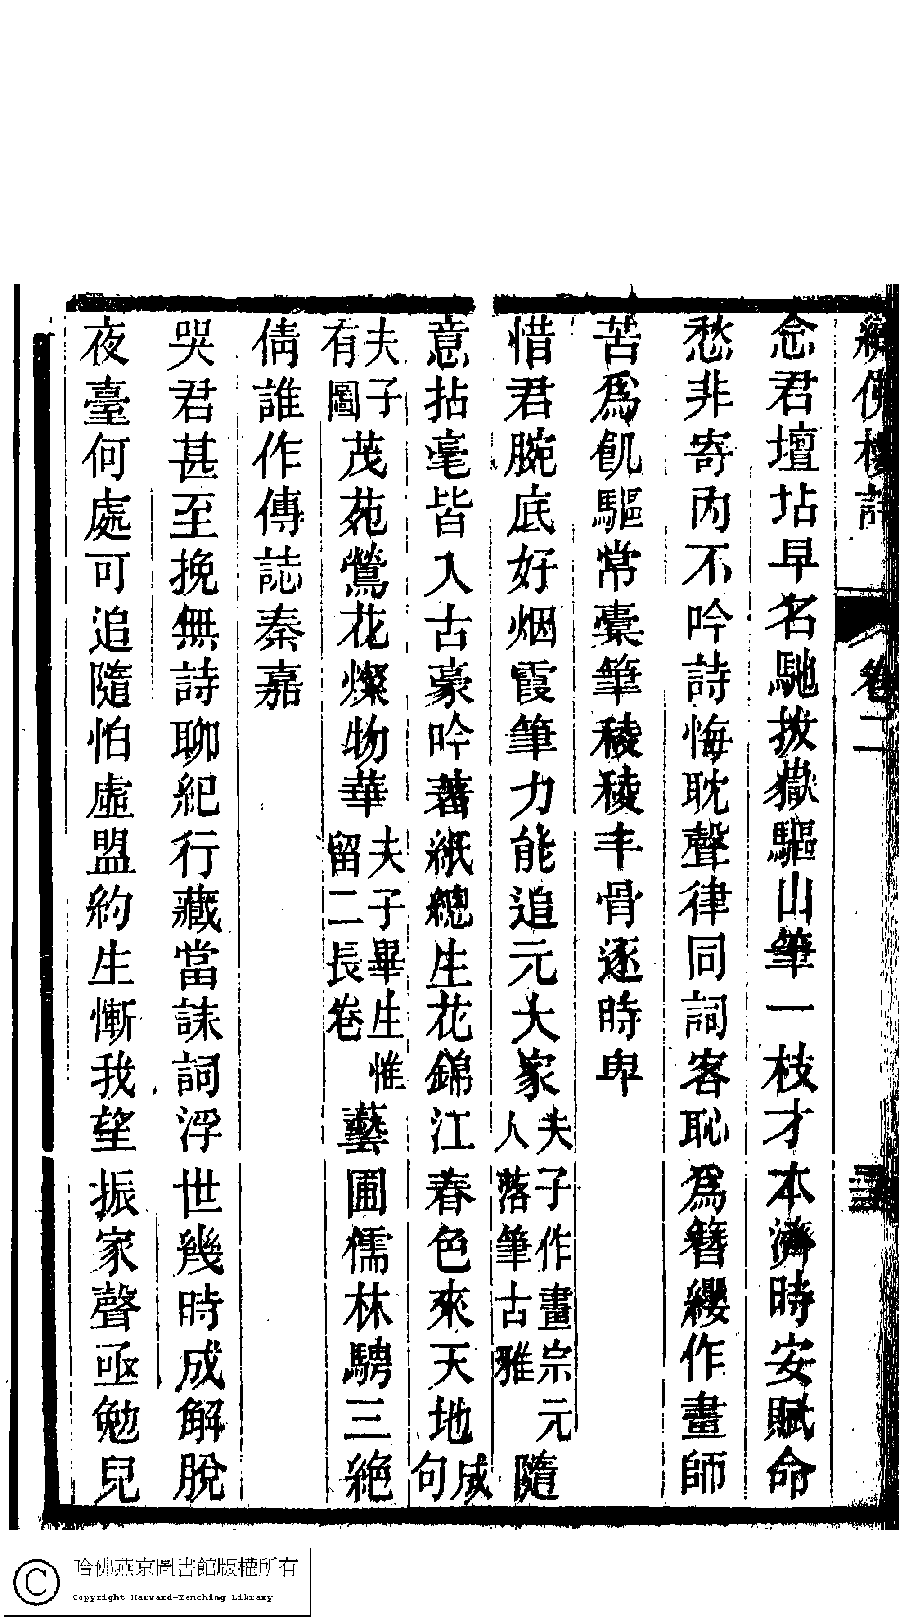 繡佛樓詩　卷二
念君壇坫早名馳拔嶽驅山筆一枝才本濟時安賦命
愁非寄內不吟詩悔耽聲律同詞客恥為簪纓作畫師
苦為飢驅常橐筆稜稜丰骨逐時卑
惜君腕底好烟霞筆力能追元大家夫子作畫宗元人落筆古雅隨
意拈毫皆入古豪吟蕃紙總生花錦江春色來天地成句
夫子有圖茂苑鶯花燦物華夫子畢生惟留二長卷藝圃儒林騁三絕
倩誰作傳誌秦嘉
哭君甚至挽無詩聊紀行藏當誄詞浮世幾時成解脫
夜臺何處可追隨怕虛盟約生慚我望振家聲亟勉兒
哈佛燕京圖書館版權所有
Copyright Harvard-Yenching Library